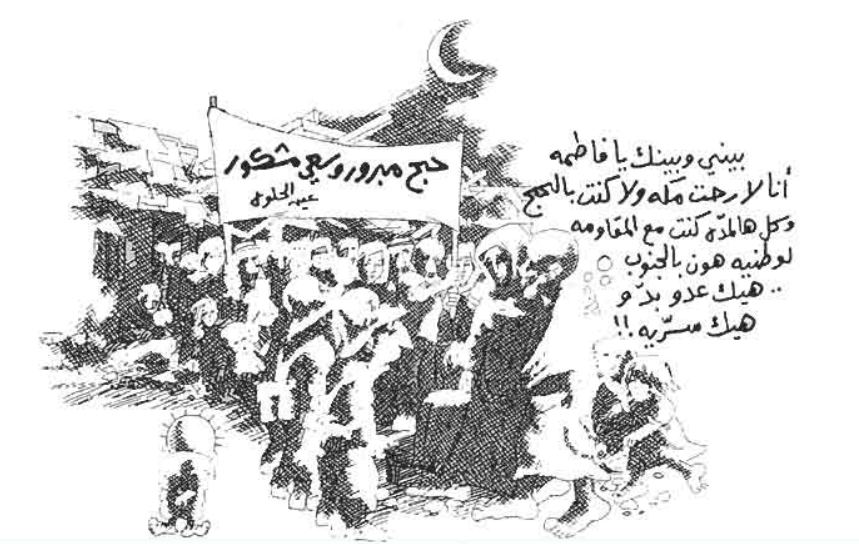 حج مبرور وسعي مشكور
عين الحلوة
بيني وبينك يا فاطمه
أنا لا رحت مكه ولا كنت بالحج
وكل هالمدّه كنت مع المقاومه
لوطنيه هون بالجنوب
.. هيك عدو بدّو
هيك مسرّبه !!